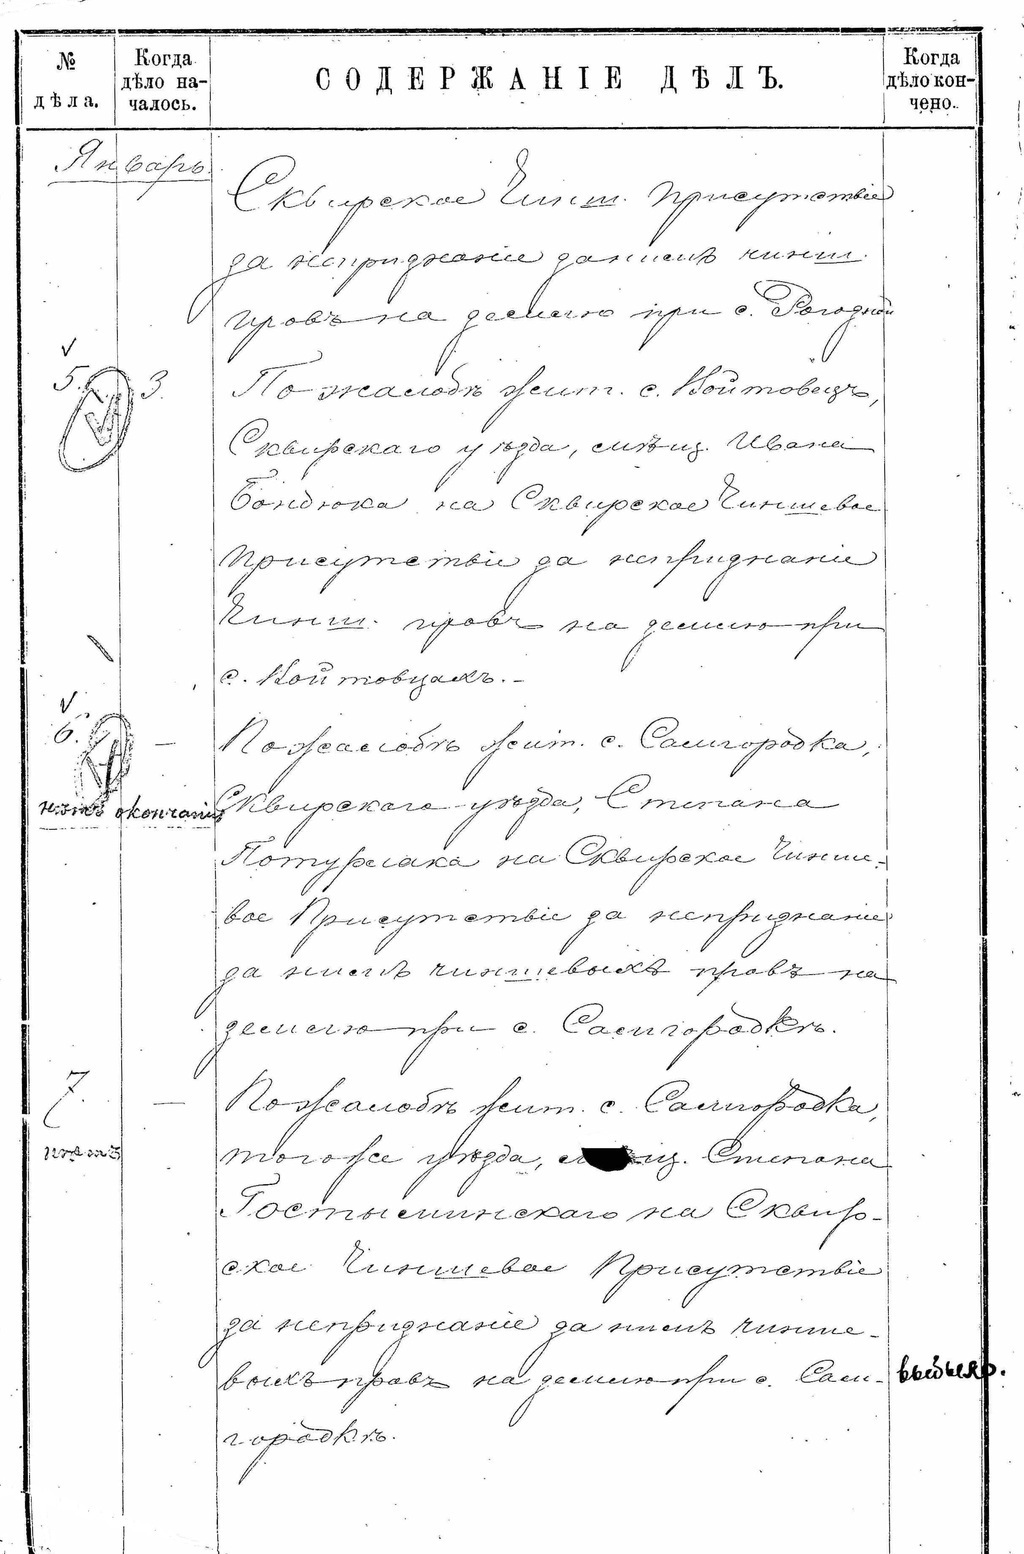 № дѣла.
Когда дѣло началось.
СОДЕРЖАНІЕ ДѢЛЪ.
Когда дѣло кончено.
Январь.
Сквирское Чинш. Присутствіе
за непризнаніе за нимъ чинш.
правъ на землю при с. Рогозной
5. 3. По жалобѣ жит. с. Войтовецъ,
Сквирскаго уѣзда, мѣщ. Ивана
Бондюка на Сквирское Чиншевое
Присутствіе за непризнаніе
Чинш. правъ на землю при
с. Войтовцахъ. -
6. — По жалобѣ жит. с. Самгородка,
нѣтъ окончанія
Сквирскаго уѣзда, Степана
Потурмака на Сквирское Чинше-
вое Присутствіе за непризнаніе
за нимъ чиншевыхъ правъ на
землю при с. Самгородкѣ.
7. — По жалобѣ жит. с. Самгородка,
нѣтъ
того же уѣзда, мѣщ. Степана
Гостыминскаго на Сквир-
ское Чиншевое Присутствіе
за непризнаніе за нимъ чинше-
выхъ правъ на землю при с. Сам-
выбыло.
городкѣ.